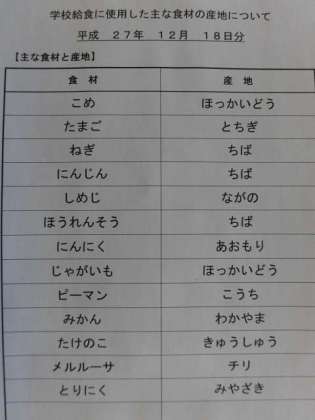 学校給食に使用した主な食材の産地について
平成　27年　12月　18日分
【主な食材と産地】
食材　産地
こめ　ほっかいどう
たまご　とちぎ
ねぎ　ちば
にんじん　ちば
しめじ　ながの
ほうれんそう　ちば
にんにく　あおもり
じゃがいも　ほっかいどう
ピーマン　こうち
みかん　わかやま
たけのこ　きゅうしゅう
メルルーサ　チリ
とりにく　みやざき